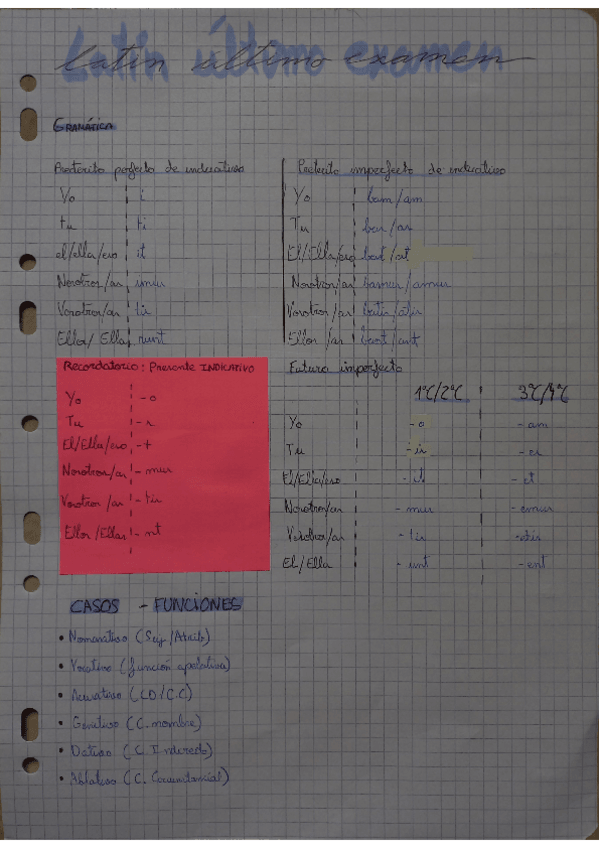 Latín último examen
GRAMÁTICA
Preterito perfecto de indicativo
Yo i
tu ti
el/ella/eso it
Nosotros/as imus
Vosotros/as tis
Ellos/Ellas runt
Preterito imperfecto de indicativo
Yo bam/am
Tu bas/as
El/Ella/eso bat/at
Nosotros/as bamus/amus
Vosotros/as batis/atis
Ellos/as bant/ant
Recordatorio: Presente INDICATIVO
Yo -o
Tu -s
El/Ella/eso -t
Nosotros/as -mus
Vosotros/as -tis
Ellos/Ellas -nt
Futuro imperfecto
1ªC/2ªC 3ªC/4ªC
Yo -o -am
Tu -is -es
El/Ella/eso -it -et
Nosotros/as -mus -emus
Vosotros/as -tis
El/Ella -unt -ent
CASOS - FUNCIONES
• Nominativo (Suj/Atrib)
• Vocativo (función apelativa)
• Acusativo (CD/C.C)
• Genitivo (C. nombre)
• Dativo (C. Indirecto)
• Ablativo (C. Circunstancial)